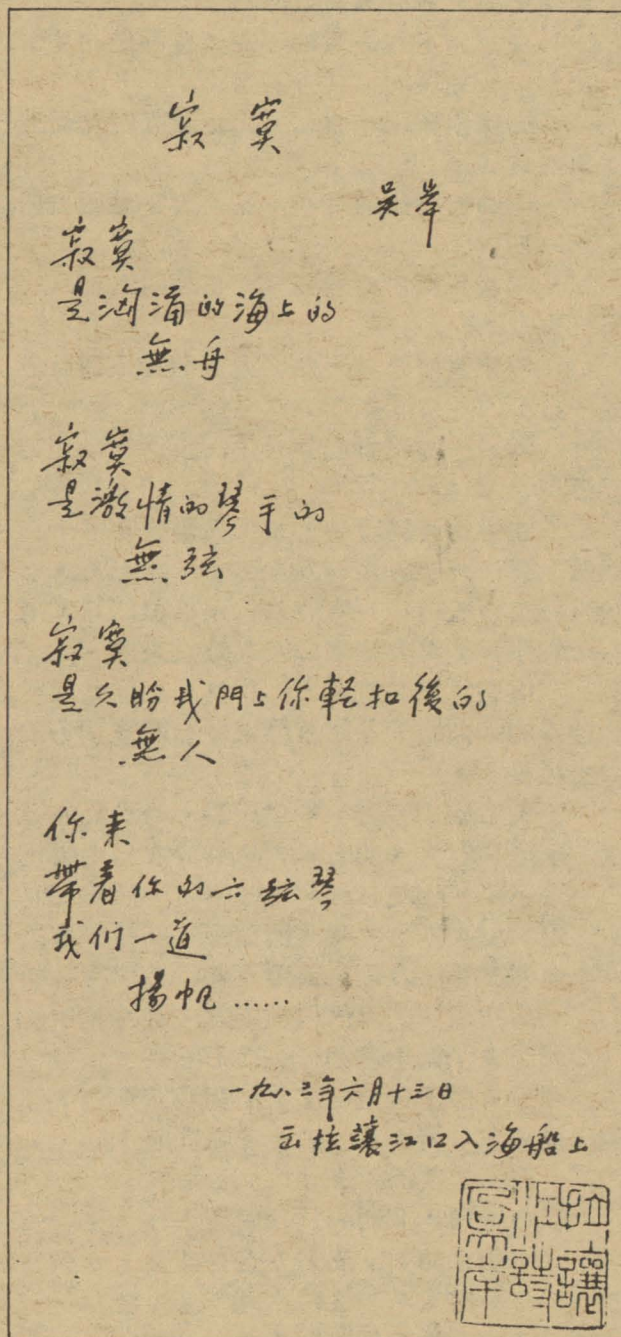 寂寞
吳岸
寂寞
是洶湧的海上的
無舟
寂寞
是激情的琴手的
無弦
寂寞
是久盼我門上你輕扣後的
無人
你来
帶着你的六弦琴
我们一道
揚帆……
一九八三年六月十三日
在拉讓江口入海船上
拉讓
江詩
吳岸